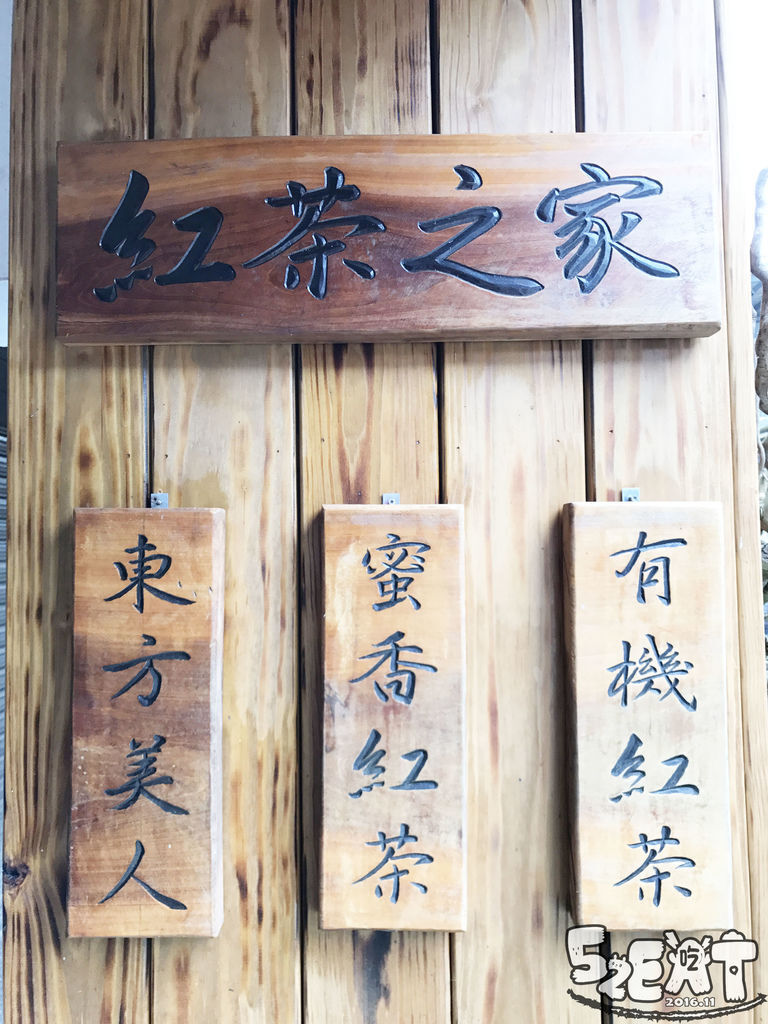 紅茶之家
有機紅茶
蜜香紅茶
東方美人
52EAT
吃
2016.11